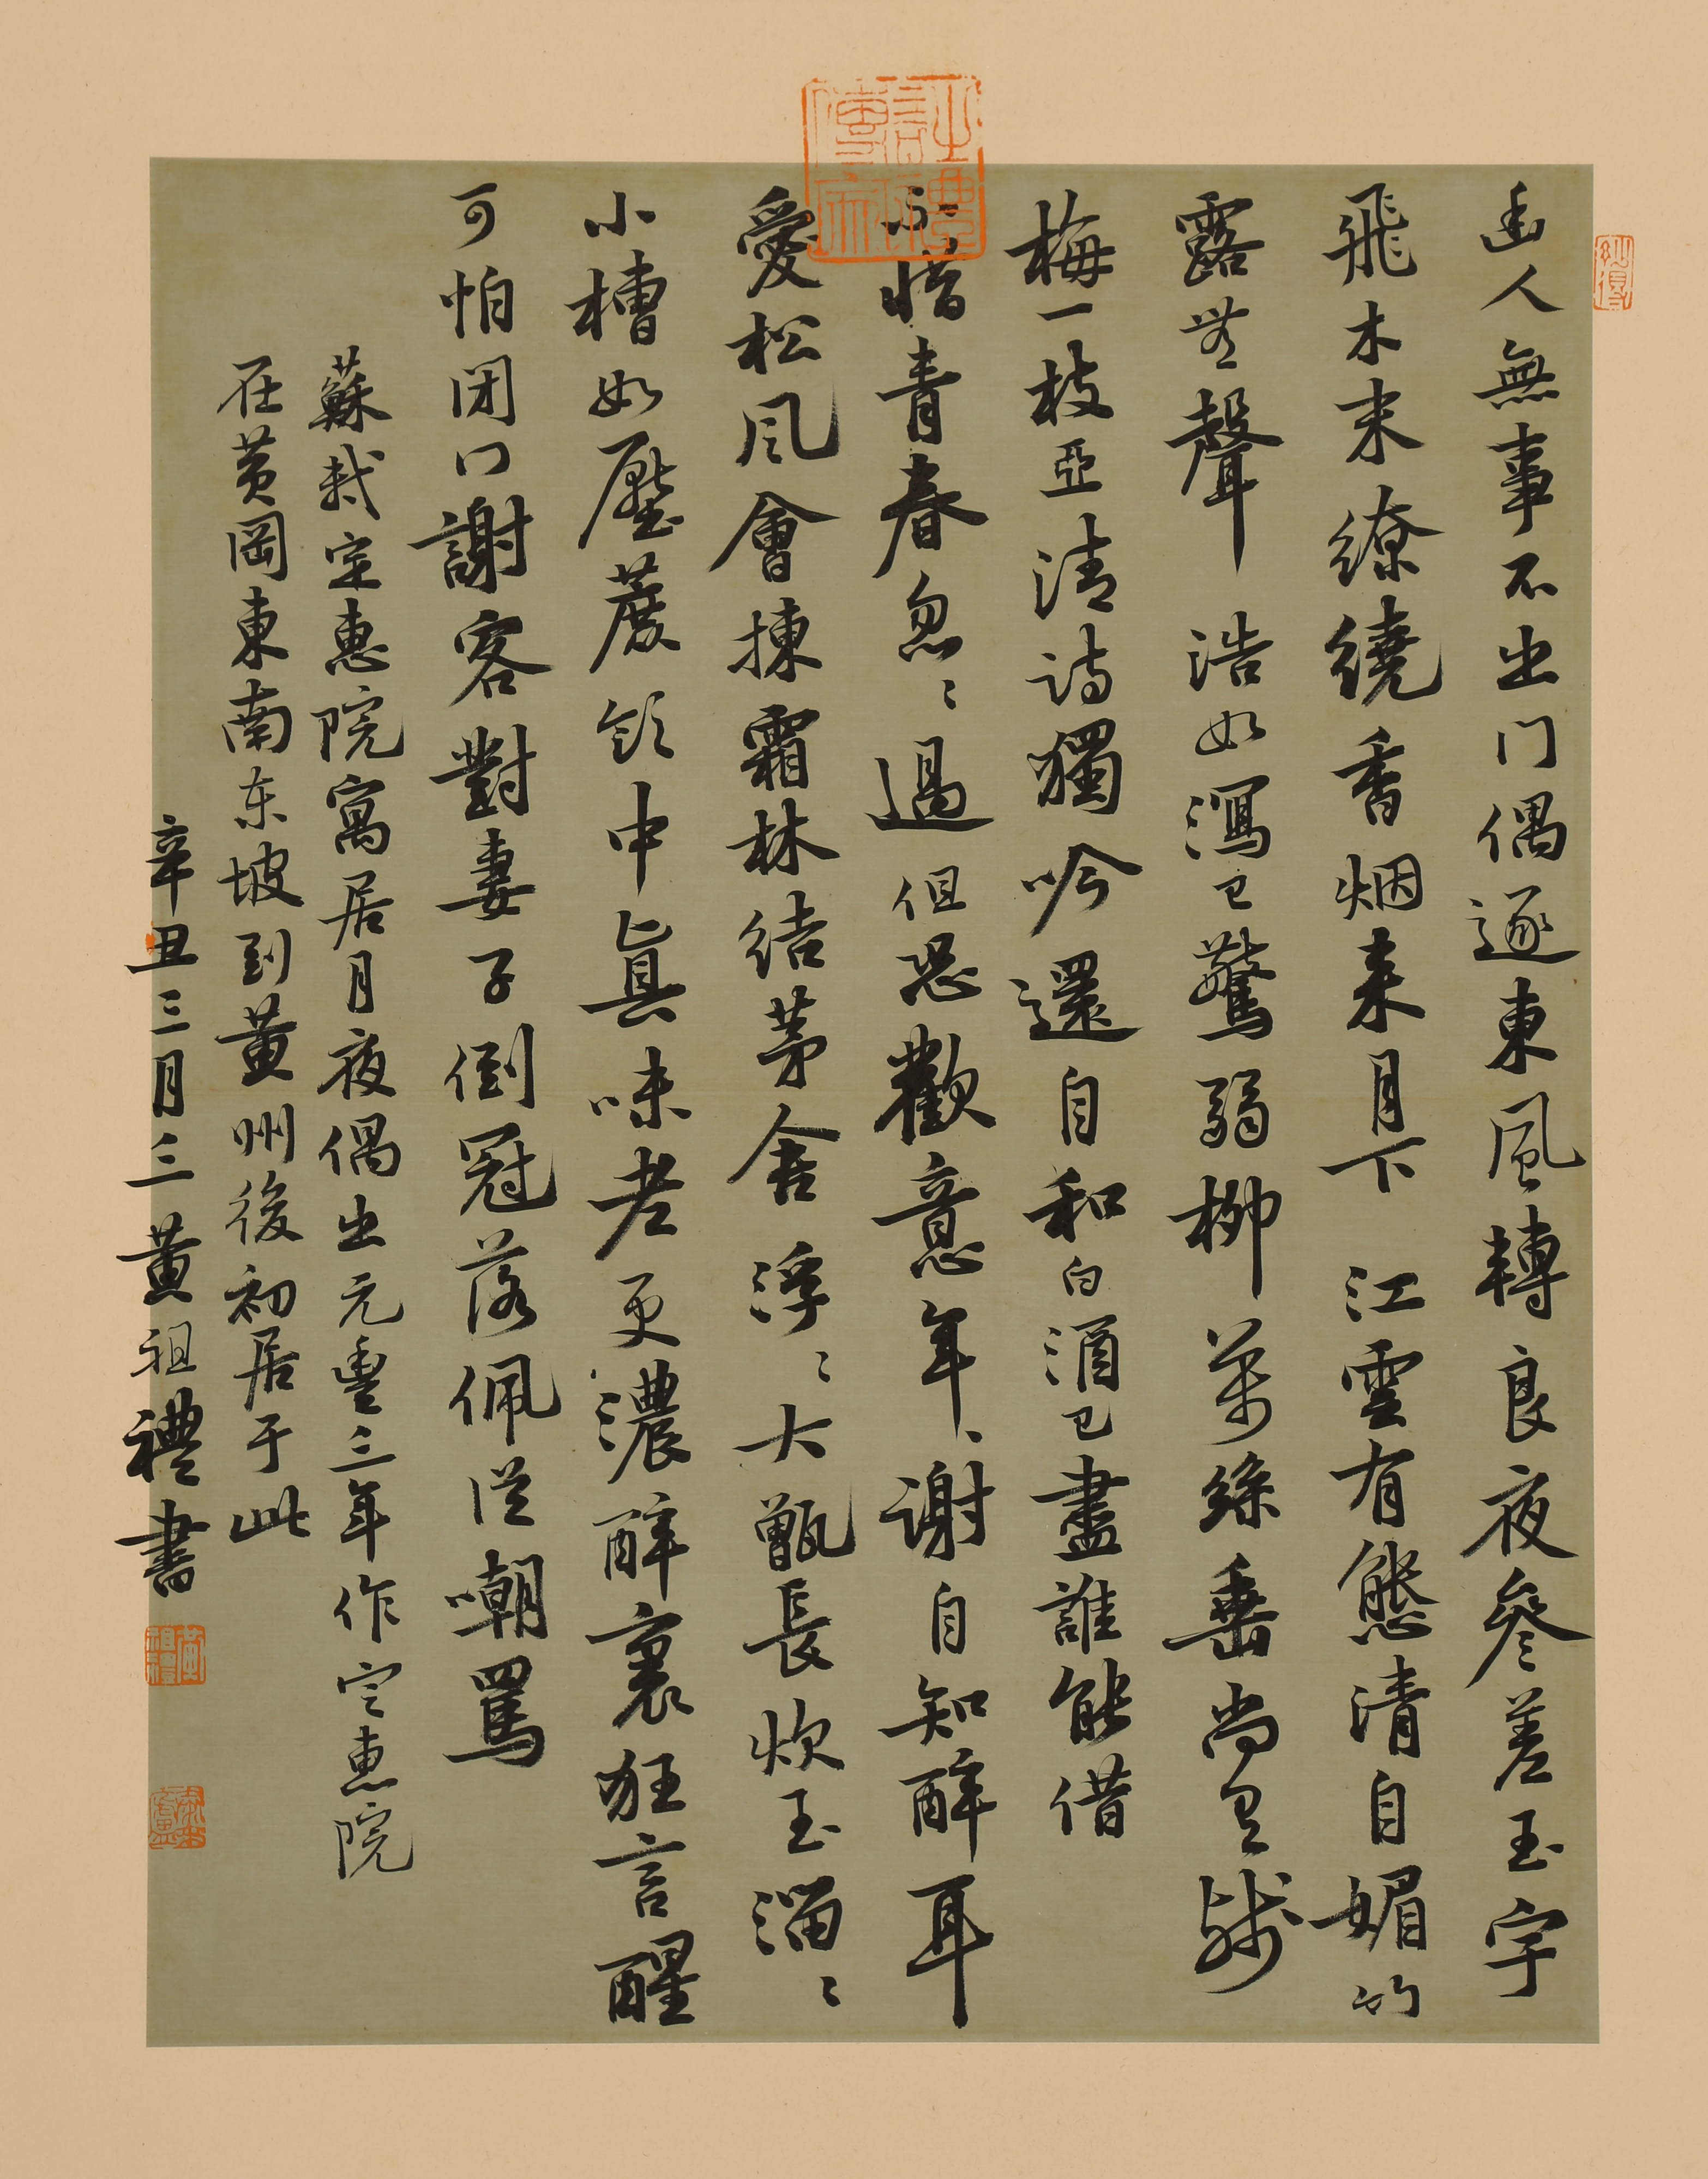 幽人無事不出门偶逐東風轉良夜參差玉宇
飛木末繚繞香烟来月下江雲有態清自媚竹
露無聲浩如瀉已驚弱柳萬絲垂尚有殘
梅一枝亞清詩獨吟還自和白酒已盡誰能借
不惜青春忽〻過但恐歡意年〻谢自知醉耳
愛松风會揀霜林結茅舍浮〻大甑長炊玉溜〻
小槽如壓蔗饮中真味老更濃醉裏狂言醒
可怕闭门謝客對妻子倒冠落佩從嘲罵
蘇軾定惠院寓居月夜偶出元豐三年作定惠院
在黄岡東南东坡到黄州後初居于此
辛丑三月三黄祖禮書
黄祖禮